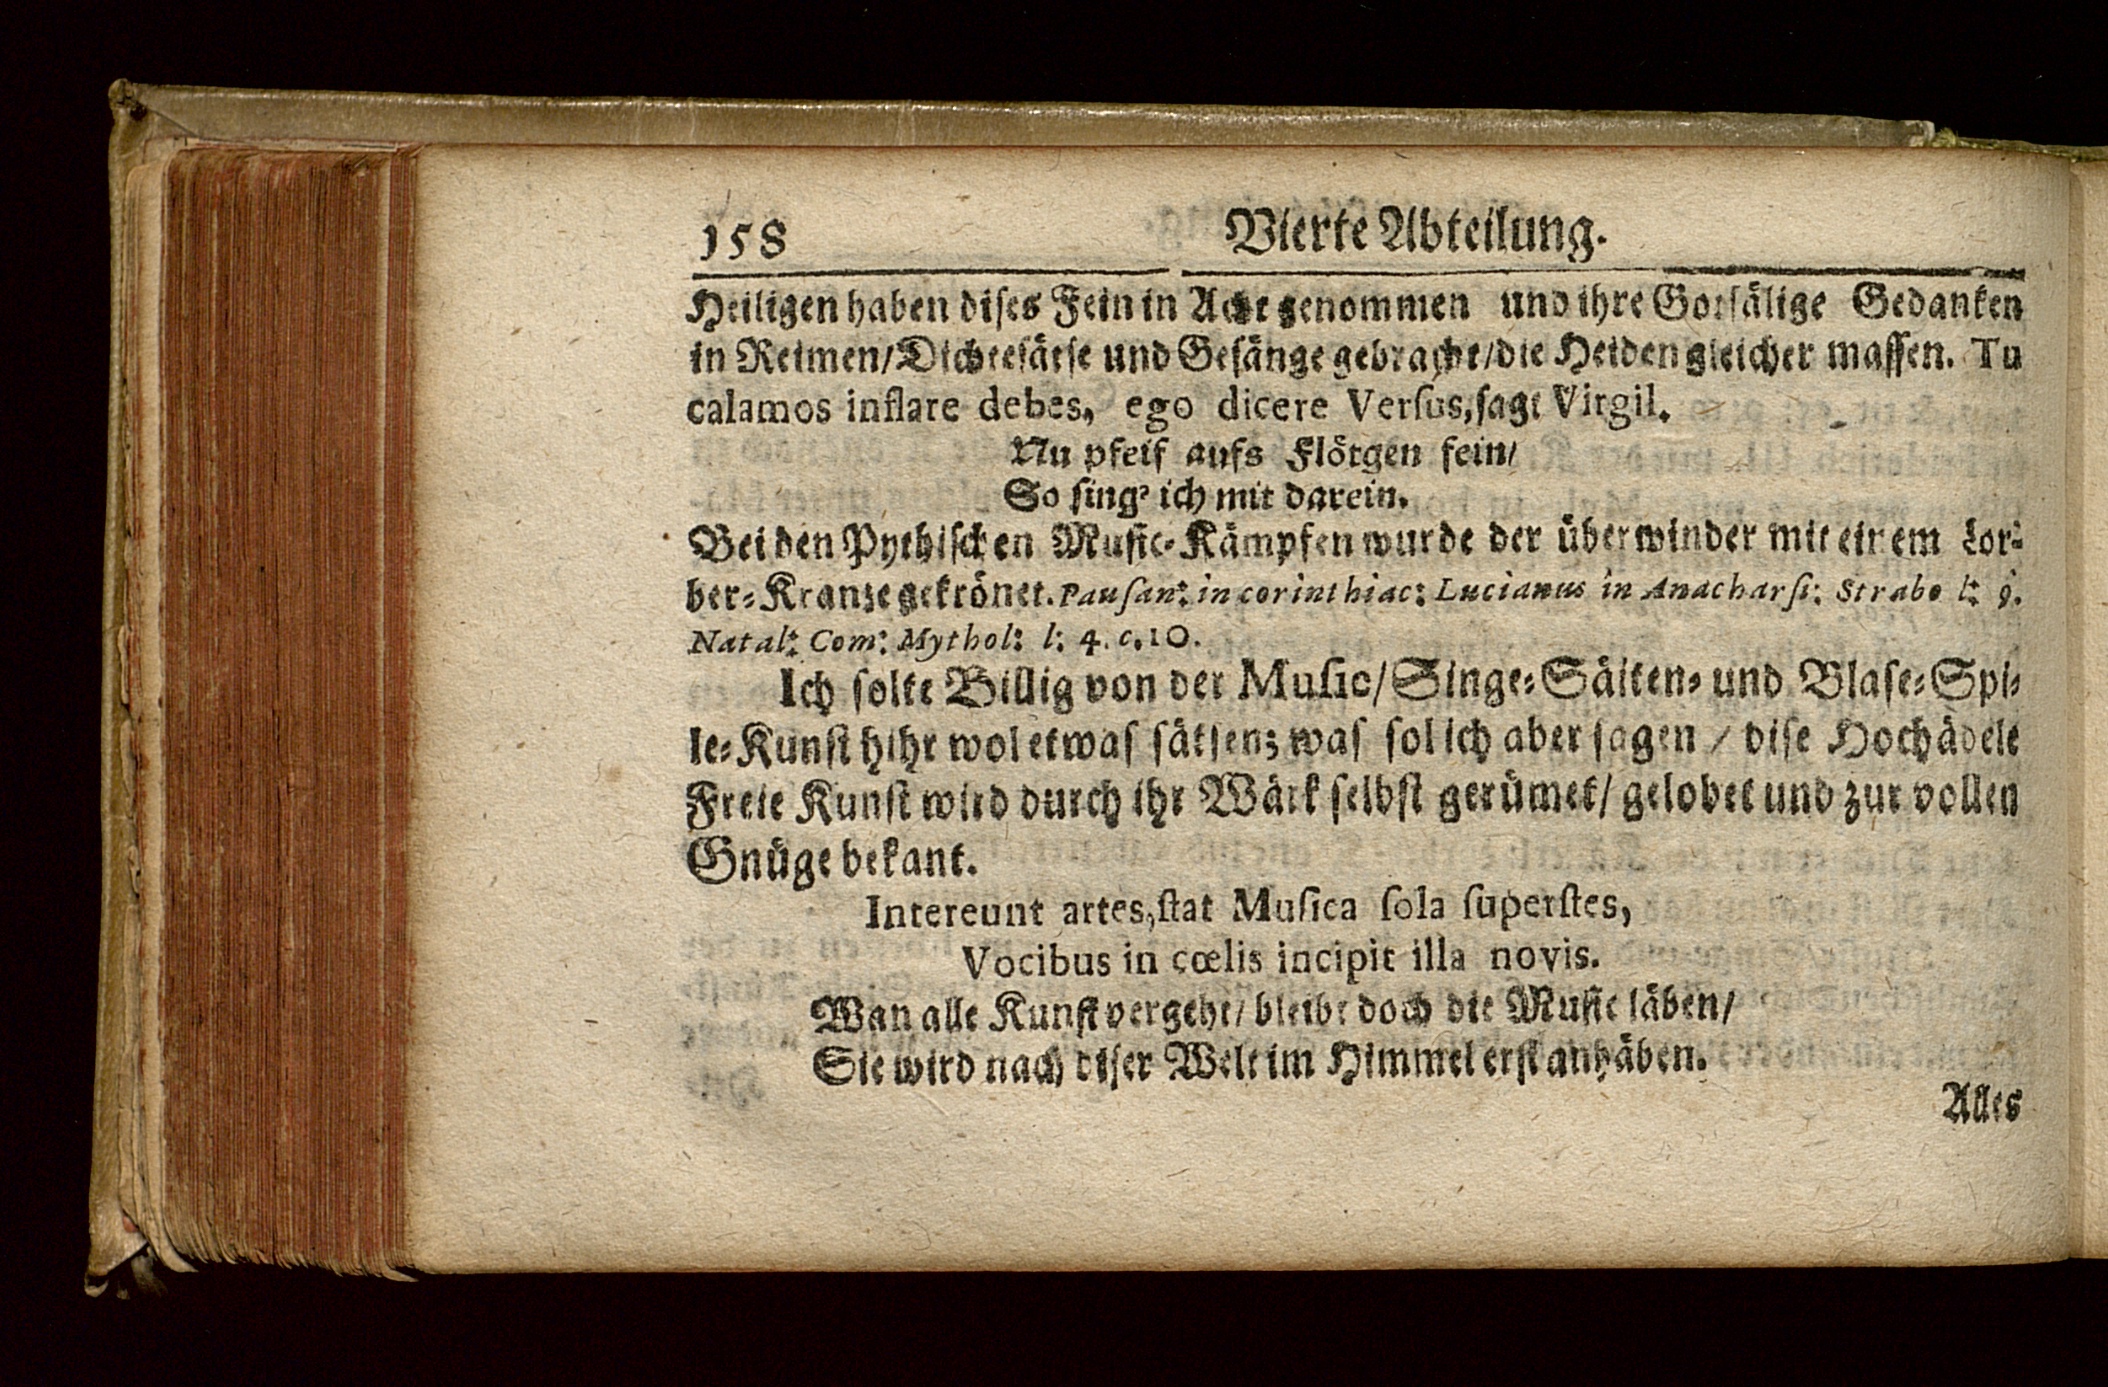 158 Vierte Abteilung.
Heiligen haben dises Fein in Acht genommen und ihre Gotsälige Gedanken
in Reimen/Dichtesätse und Gesänge gebracht/die Heiden gleicher massen. Tu
calamos inflare debes, ego dicere Verſus, sagt Virgil.
Nu pfeif aufs Flötgen fein/
So sing' ich mit darein.
Bei den Pythischen Music-Kämpfen wurde der überwinder mit einem Lor-
ber-Kranze gekrönet. Pauſan: in corinthiac: Lucianus in Anacharſi: Strabo l: 9.
Natal: Com: Mythol: l: 4. c. 10.
Ich solte Billig von der Muſic/Singe-Säiten- und Blase-Spi-
le-Kunst hihr wol etwas sätsen; was sol ich aber sagen / dise Hochädele
Freie Kunst wird durch ihr Wärk selbst gerümet/ gelobet und zur vollen
Gnüge bekant.
Intereunt artes, ſtat Muſica ſola ſuperſtes,
Vocibus in cœlis incipit illa novis.
Wan alle Kunst vergeht/ bleibt doch die Music läben/
Sie wird nach diser Welt im Himmel erst anhäben.
Alles